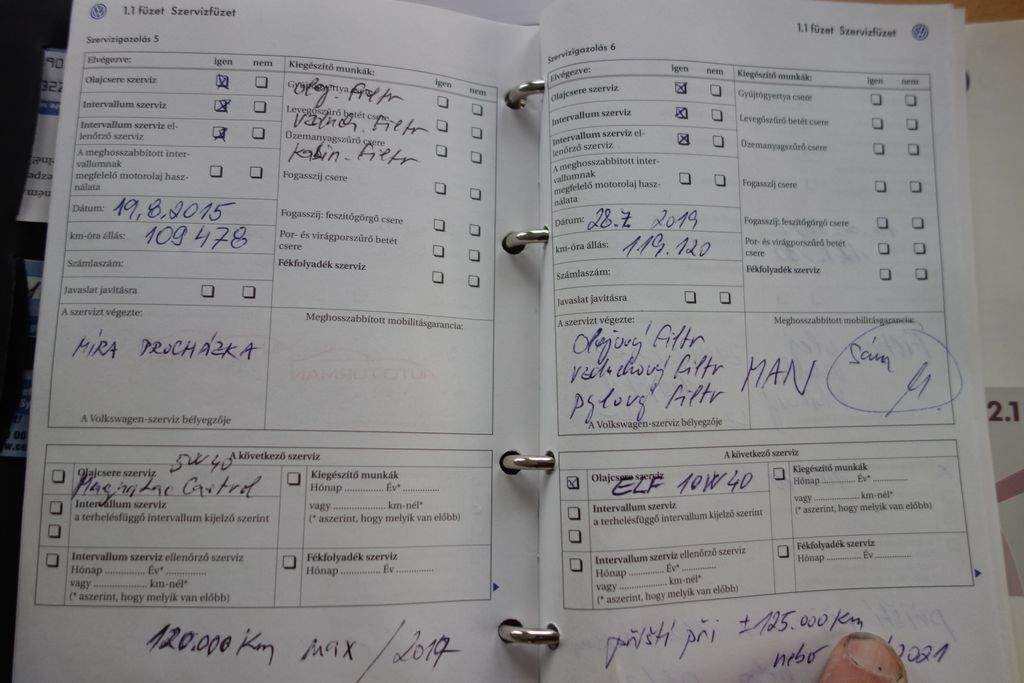 1.1 füzet Szervizfüzet
Szervizigazolás 5
Elvégezve: igen nem
Olajcsere szerviz
Intervallum szerviz
Intervallum szerviz el-
lenőrző szerviz
A meghosszabbított inter-
vallumnak
megfelelő motorolaj hasz-
nálata
Dátum: 19.8.2015
km-óra állás: 109478
Számlaszám:
Javaslat javításra
Kiegészítő munkák: igen nem
Gyújtógyertya csere
olej. filtr
Levegőszűrő betét csere
vzduch. filtr
Üzemanyagszűrő csere
kabin. filtr
Fogasszíj csere
Fogasszíj: feszítőgörgő csere
Por- és virágporszűrő betét
csere
Fékfolyadék szerviz
A szervizt végezte:
MÍRA PROCHÁZKA
A Volkswagen-szerviz bélyegzője
Meghosszabbított mobilitásgarancia:
A következő szerviz
Olajcsere szerviz 5W40
Magnatec Castrol
Intervallum szerviz
a terhelésfüggő intervallum kijelző szerint
Intervallum szerviz ellenőrző szerviz
Hónap .............. Év* ..............
vagy .................... km-nél*
(* aszerint, hogy melyik van előbb)
Kiegészítő munkák
Hónap .............. Év* .............
vagy .................... km-nél*
(* aszerint, hogy melyik van előbb)
Fékfolyadék szerviz
Hónap .............. Év .............
120.000 km max / 2017
1.1 füzet Szervizfüzet
Szervizigazolás 6
Elvégezve: igen nem
Olajcsere szerviz
Intervallum szerviz
Intervallum szerviz el-
lenőrző szerviz
A meghosszabbított inter-
vallumnak
megfelelő motorolaj hasz-
nálata
Dátum: 28.7. 2019
km-óra állás: 119.120
Számlaszám:
Javaslat javításra
Kiegészítő munkák: igen nem
Gyújtógyertya csere
Levegőszűrő betét csere
Üzemanyagszűrő csere
Fogasszíj csere
Fogasszíj: feszítőgörgő csere
Por- és virágporszűrő betét
csere
Fékfolyadék szerviz
A szervizt végezte:
Olejový filtr
vzduchový filtr
pylový filtr MANN
A Volkswagen-szerviz bélyegzője
Meghosszabbított mobilitásgarancia:
Sám
A következő szerviz
Olajcsere szerviz
ELF 10W40
Intervallum szerviz
a terhelésfüggő intervallum kijelző szerint
Intervallum szerviz ellenőrző szerviz
Hónap .............. Év* ..............
vagy .................... km-nél*
(* aszerint, hogy melyik van előbb)
Kiegészítő munkák
Hónap .............. Év* .............
vagy .................... km-nél*
(* aszerint, hogy melyik van előbb)
Fékfolyadék szerviz
Hónap .............. Év .............
příští při ±125.000 km
nebo 2021
2.1